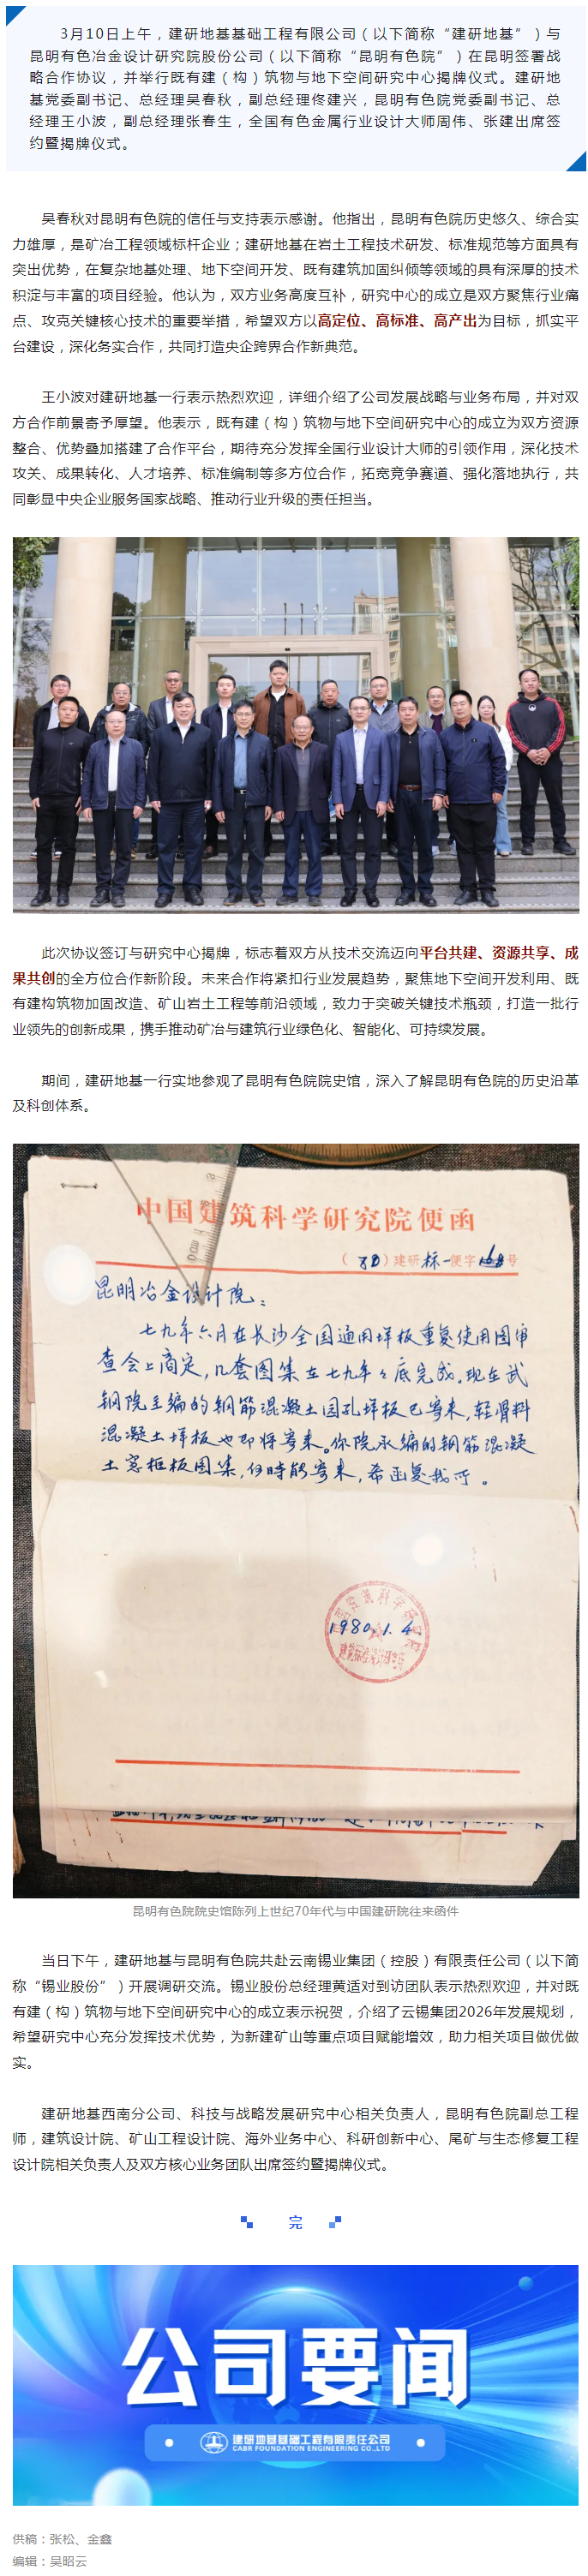 3月10日上午，建研地基基础工程有限公司（以下简称“建研地基”）与
昆明有色冶金设计研究院股份公司（以下简称“昆明有色院”）在昆明签署战
略合作协议，并举行既有建（构）筑物与地下空间研究中心揭牌仪式。建研地
基党委副书记、总经理吴春秋，副总经理佟建兴，昆明有色院党委副书记、总
经理王小波，副总经理张春生，全国有色金属行业设计大师周伟、张建出席签
约暨揭牌仪式。
吴春秋对昆明有色院的信任与支持表示感谢。他指出，昆明有色院历史悠久、综合实
力雄厚，是矿冶工程领域标杆企业；建研地基在岩土工程技术研发、标准规范等方面具有
突出优势，在复杂地基处理、地下空间开发、既有建筑加固纠倾等领域的具有深厚的技术
积淀与丰富的项目经验。他认为，双方业务高度互补，研究中心的成立是双方聚焦行业痛
点、攻克关键核心技术的重要举措，希望双方以高定位、高标准、高产出为目标，抓实平
台建设，深化务实合作，共同打造央企跨界合作新典范。
王小波对建研地基一行表示热烈欢迎，详细介绍了公司发展战略与业务布局，并对双
方合作前景寄予厚望。他表示，既有建（构）筑物与地下空间研究中心的成立为双方资源
整合、优势叠加搭建了合作平台，期待充分发挥全国行业设计大师的引领作用，深化技术
攻关、成果转化、人才培养、标准编制等多方位合作，拓宽竞争赛道、强化落地执行，共
同彰显中央企业服务国家战略、推动行业升级的责任担当。
此次协议签订与研究中心揭牌，标志着双方从技术交流迈向平台共建、资源共享、成
果共创的全方位合作新阶段。未来合作将紧扣行业发展趋势，聚焦地下空间开发利用、既
有建构筑物加固改造、矿山岩土工程等前沿领域，致力于突破关键技术瓶颈，打造一批行
业领先的创新成果，携手推动矿冶与建筑行业绿色化、智能化、可持续发展。
期间，建研地基一行实地参观了昆明有色院院史馆，深入了解昆明有色院的历史沿革
及科创体系。
中国建筑科学研究院便函
（80）建研标一便字号
昆明冶金设计院：
七九年六月在长沙全国通用坪板重复使用图审
查会上商定，几套图集在七九年年底完成。现在武
钢院主编的钢筋混凝土园孔坪板已寄来，轻骨料
混凝土坪板也即将寄来。你院承编的钢筋混凝
土窓框板图集，何時能寄来，希函复我可。
1980.1.4.
昆明有色院院史馆陈列上世纪70年代与中国建研院往来函件
当日下午，建研地基与昆明有色院共赴云南锡业集团（控股）有限责任公司（以下简
称“锡业股份”）开展调研交流。锡业股份总经理黄适对到访团队表示热烈欢迎，并对既
有建（构）筑物与地下空间研究中心的成立表示祝贺，介绍了云锡集团2026年发展规划，
希望研究中心充分发挥技术优势，为新建矿山等重点项目赋能增效，助力相关项目做优做
实。
建研地基西南分公司、科技与战略发展研究中心相关负责人，昆明有色院副总工程
师，建筑设计院、矿山工程设计院、海外业务中心、科研创新中心、尾矿与生态修复工程
设计院相关负责人及双方核心业务团队出席签约暨揭牌仪式。
完
公司要闻
建研地基基础工程有限责任公司
CABR FOUNDATION ENGINEERING CO.,LTD
供稿：张松、金鑫
编辑：吴昭云